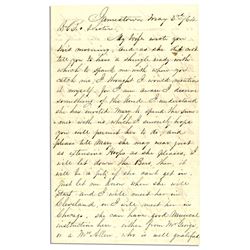 Jamestown May 5th /62
My Wife wrote you
this morning, and as she did not
tell you to have a shingle ready with
which to spank me with when you
catch me I thought I would mention
it myself, for I am aware I deserve
something of the kind. I understand
she has invited Mary to spend the Sum
mer with us which I sincerely hope
you will permit her to do, and
please tell Mary she may wear just
as extensive Hoops as she pleases, I
will let down the Bars, then, it
will be a pity if she can't get in.
Just let me know when she will
start and I will meet her in
Cleveland, or I will meet her in
Chicago, she can have good Musical
instructions here, either from Mr
or a Mr Allen, who is well qualified